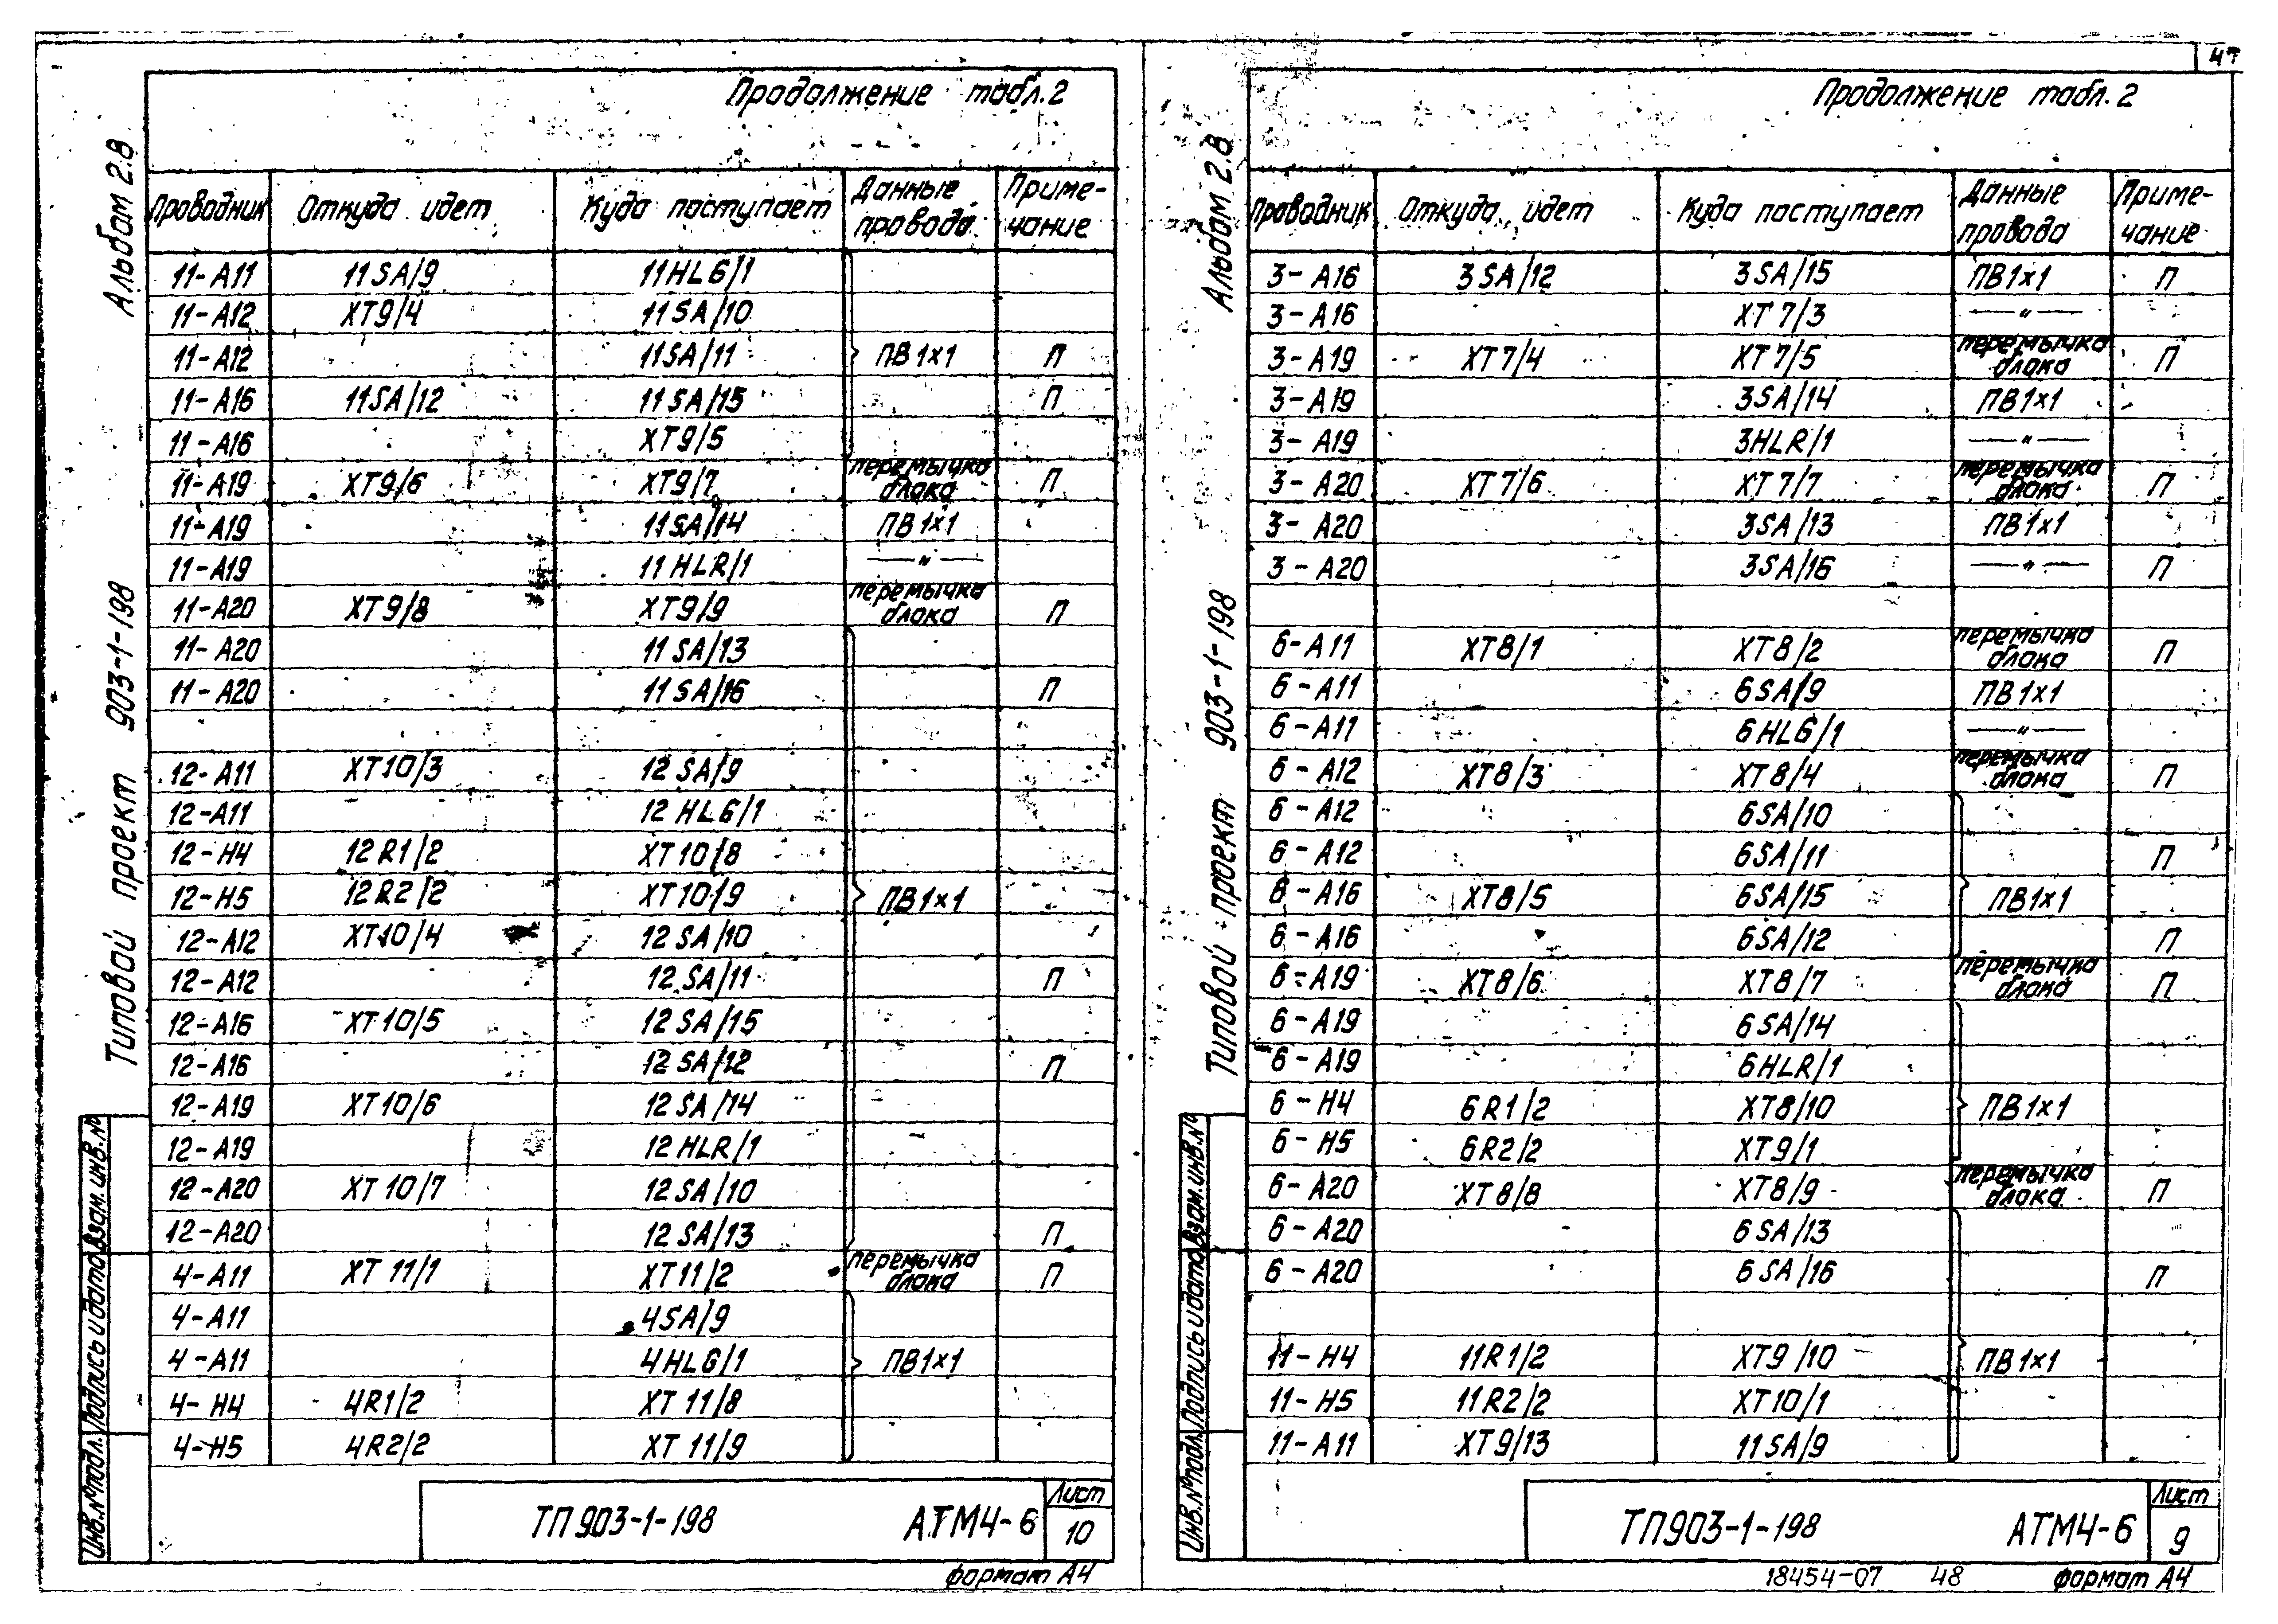 47
Продолжение табл. 2
Альбом 2.8
Типовой проект 903-1-198
Проводник Откуда идет Куда поступает Данные провода Примечание
11-А11 11SA/9 11HLG/1
11-А12 XT9/4 11SA/10
11-А12 11SA/11 ПВ1×1 П
11-А16 11SA/12 11SA/15 П
11-А16 XT9/5
11-А19 XT9/6 XT9/7 перемычка блока П
11-А19 11SA/14 ПВ1×1
11-А19 11HLR/1 —"—
11-А20 XT9/8 XT9/9 перемычка блока П
11-А20 11SA/13
11-А20 11SA/16 П
12-А11 XT10/3 12SA/9
12-А11 12HLG/1
12-Н4 12R1/2 XT10/8
12-Н5 12R2/2 XT10/9 ПВ1×1
12-А12 XT10/4 12SA/10
12-А12 12SA/11 П
12-А16 XT10/5 12SA/15
12-А16 12SA/12 П
12-А19 XT10/6 12SA/14
12-А19 12HLR/1
12-А20 XT10/7 12SA/10
12-А20 12SA/13 П
4-А11 XT11/1 XT11/2 перемычка блока П
4-А11 4SA/9
4-А11 4HLG/1 ПВ1×1
4-Н4 4R1/2 XT11/8
4-Н5 4R2/2 XT11/9
Инв.№подл. Подпись и дата Взам.инв.№
ТП903-1-198 АТМ4-6 Лист 10
формат А4
Продолжение табл. 2
Альбом 2.8
Типовой проект 903-1-198
Проводник Откуда идет Куда поступает Данные провода Примечание
3-А16 3SA/12 3SA/15 ПВ1×1 П
3-А16 XT7/3 —"—
3-А19 XT7/4 XT7/5 перемычка блока П
3-А19 3SA/14 ПВ1×1
3-А19 3HLR/1 —"—
3-А20 XT7/6 XT7/7 перемычка блока П
3-А20 3SA/13 ПВ1×1
3-А20 3SA/16 —"— П
6-А11 XT8/1 XT8/2 перемычка блока П
6-А11 6SA/9 ПВ1×1
6-А11 6HLG/1 —"—
6-А12 XT8/3 XT8/4 перемычка блока П
6-А12 6SA/10
6-А12 6SA/11 П
6-А16 XT8/5 6SA/15 ПВ1×1
6-А16 6SA/12 П
6-А19 XT8/6 XT8/7 перемычка блока П
6-А19 6SA/14
6-А19 6HLR/1
6-Н4 6R1/2 XT8/10 ПВ1×1
6-Н5 6R2/2 XT9/1
6-А20 XT8/8 XT8/9 перемычка блока П
6-А20 6SA/13
6-А20 6SA/16 П
11-Н4 11R1/2 XT9/10 ПВ1×1
11-Н5 11R2/2 XT10/1
11-А11 XT9/13 11SA/9
Инв.№подл. Подпись и дата Взам.инв.№
ТП903-1-198 АТМ4-6 Лист 9
18454-07 48 формат А4